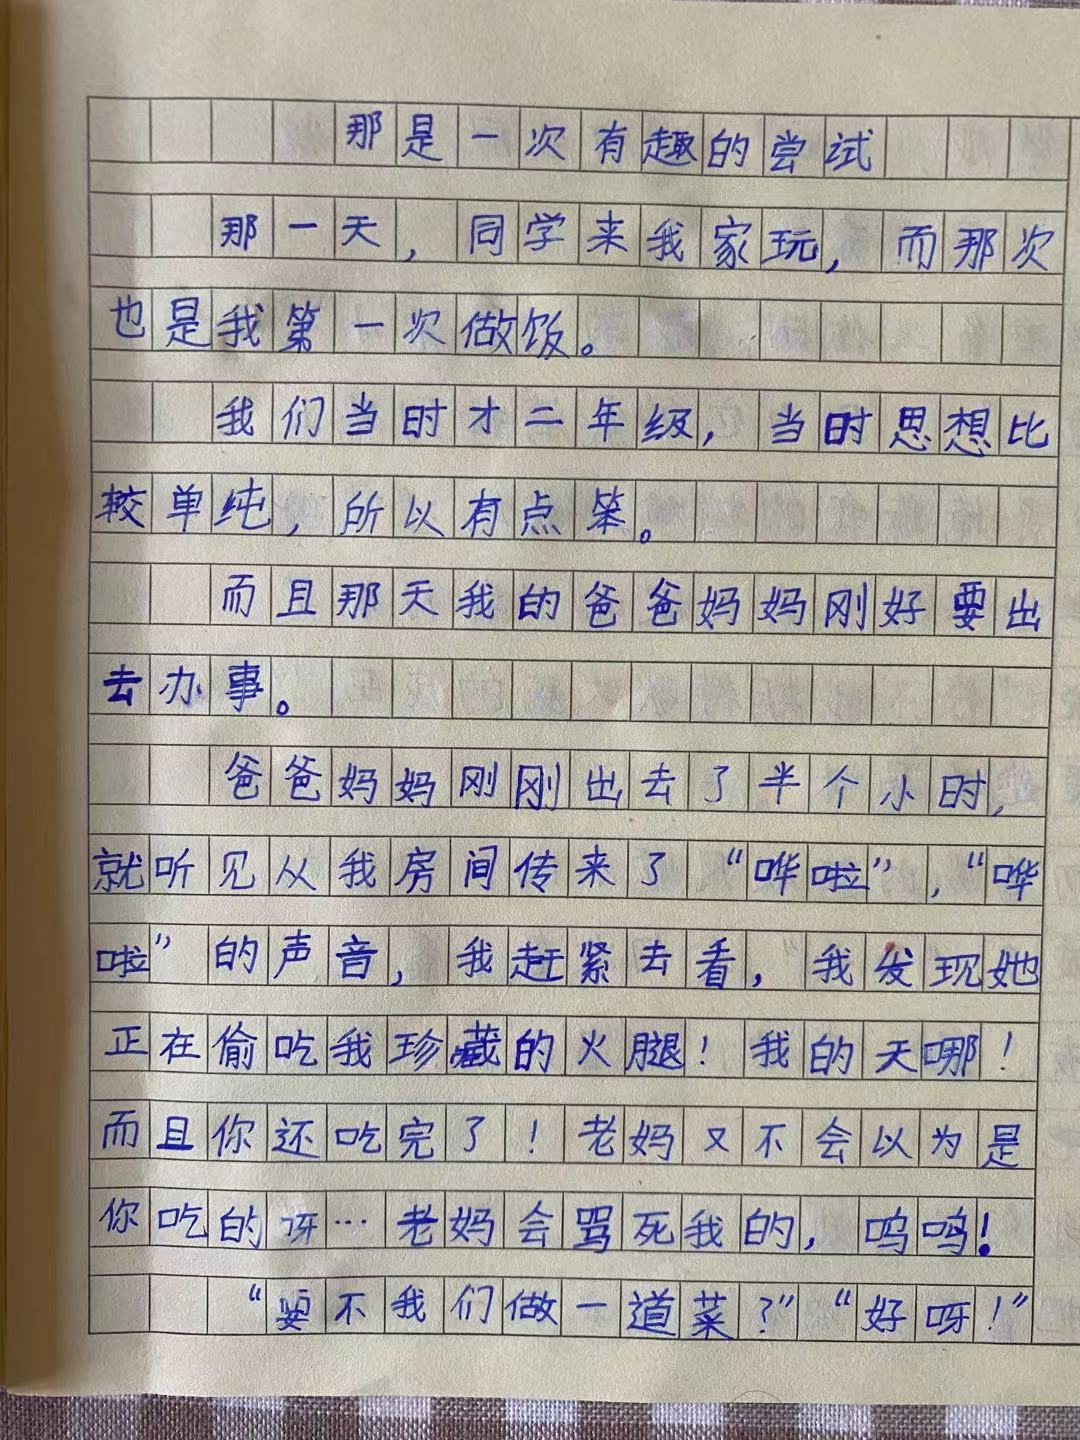 那是一次有趣的尝试
那一天，同学来我家玩，而那次
也是我第一次做饭。
我们当时才二年级，当时思想比
较单纯，所以有点笨。
而且那天我的爸爸妈妈刚好要出
去办事。
爸爸妈妈刚刚出去了半个小时，
就听见从我房间传来了“哗啦”，“哗
啦”的声音，我赶紧去看，我发现她
正在偷吃我珍藏的火腿！我的天哪！
而且你还吃完了！老妈又不会以为是
你吃的呀…老妈会骂死我的，呜呜！
“要不我们做一道菜？”“好呀！”